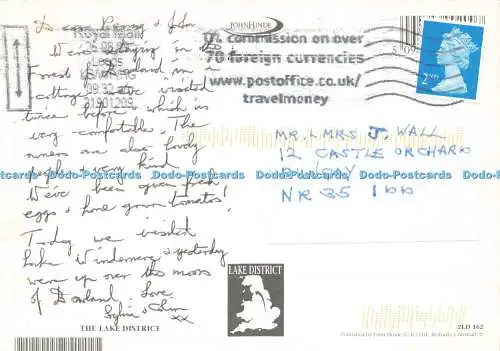 Dear Penny & John
We're staying in the
Forest of Bowland in
cottage we've visited
twice before which is
very comfortable. The
owners are also lovely
people & very kind
We've been given fresh
eggs & home grown tomatoes!
Today we visited
Lake Windermere & yesterday
were up over the moors
of Bowland. Love
Sylvia &
xx
THE LAKE DISTRICT
JOHN HINDE
Royal Mail
09:32
21901209
0% commission on over
70 foreign currencies
www.postoffice.co.uk/
travelmoney
2ND
MR & MRS J. WALL
12 CASTLE ORCHARD
BUNGAY
NR35 1DD
LAKE DISTRICT
2LD 162
Published by John Hinde (U.K.) Ltd., Redruth, Cornwall. ©
Dodo-Postcards Dodo-Postcards Dodo-Postcards Dodo-Postcards Dodo-Postcards